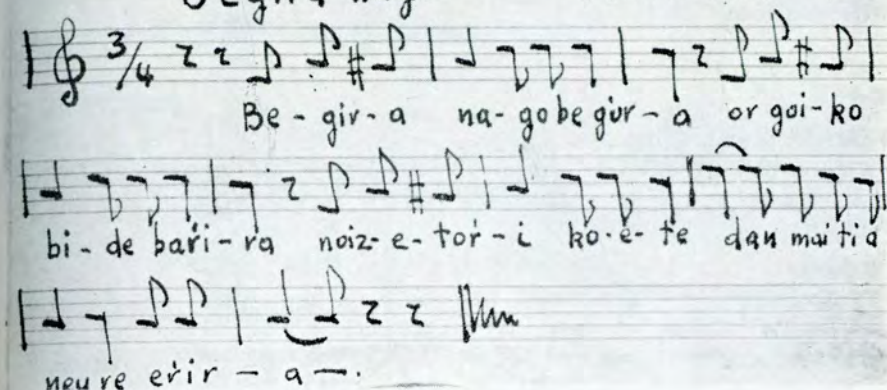 3/4
Be-gir-a na-go be gir-a or goi-ko
bi-de bar̃i-ra noiz-e-tor̃-i ko-e-te dan mai ti a
neure er̃ir-a-.